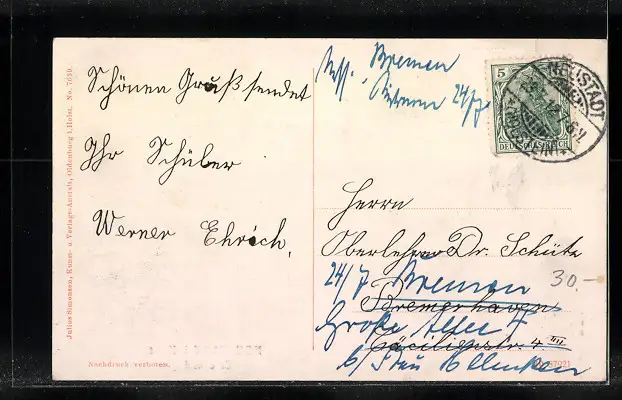 Schönen Gruß sendet
Ihr Schüler
Werner Ehrich.
Julius Simonsen, Kunst- u. Verlags-Anstalt, Oldenburg i. Holst. No. 7650.
Nachdruck verboten.
Bremen
24/7
5
DEUTSCHES REICH
NEUSTADT
(HOLSTEIN)
Herrn
Oberlehrer Dr. Schütz
24/7 Bremen
Bremerhaven
Große Allee 7
Cäcilienstr. 4 III
b/ Frau
30.-